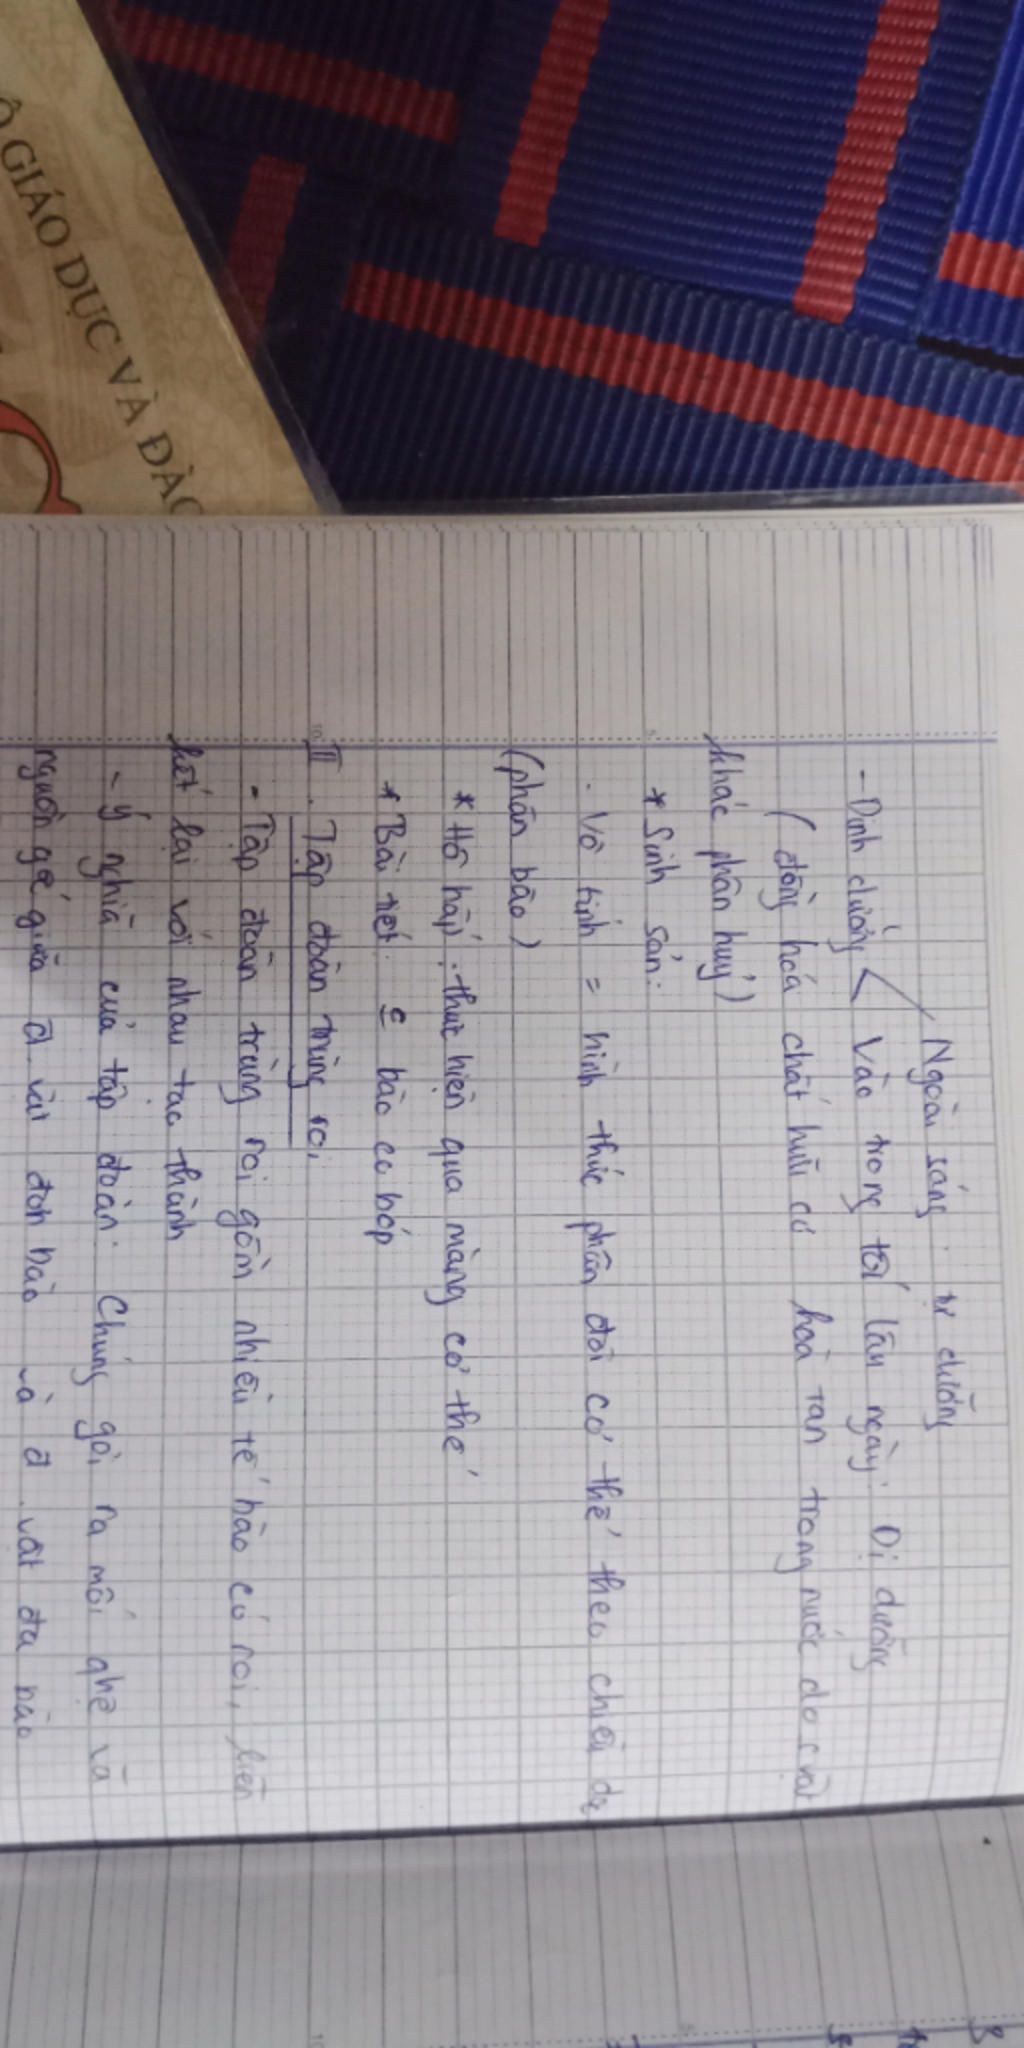 Ngoài sáng: tự dưỡng
- Dinh dưỡng < Vào trong tối lâu ngày: Dị dưỡng
(đồng hoá chất hữu cơ hoà tan trong nước do s.vật
khác phân huỷ)
* Sinh sản:
. Vô tính = hình thức phân đôi cơ thể theo chiều dọc
(phân bào)
* Hô hấp: thực hiện qua màng cơ thể
* Bài tiết: = bào co bóp
III. Tập đoàn trùng roi
- Tập đoàn trùng roi gồm nhiều tế bào có roi, liên
kết lại với nhau tạo thành
- Ý nghĩa của tập đoàn: Chúng gợi ra mối qhệ và
nguồn gốc giữa đ.vật đơn bào và đ.vật đa bào
Ộ GIÁO DỤC VÀ ĐÀO